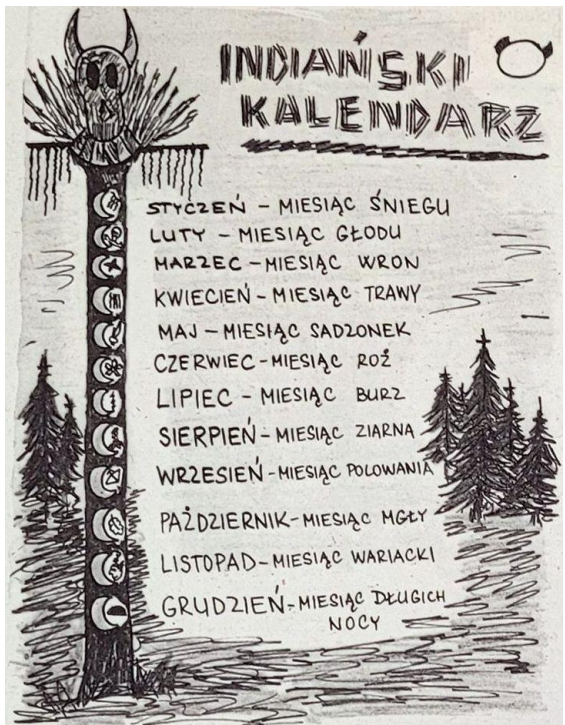 INDIAŃSKI
KALENDARZ
STYCZEŃ - MIESIĄC ŚNIEGU
LUTY - MIESIĄC GŁODU
MARZEC - MIESIĄC WRON
KWIECIEŃ - MIESIĄC TRAWY
MAJ - MIESIĄC SADZONEK
CZERWIEC - MIESIĄC ROŻ
LIPIEC - MIESIĄC BURZ
SIERPIEŃ - MIESIĄC ZIARNA
WRZESIEŃ - MIESIĄC POLOWANIA
PAŹDZIERNIK - MIESIĄC MGŁY
LISTOPAD - MIESIĄC WARIACKI
GRUDZIEŃ - MIESIĄC DŁUGICH
NOCY